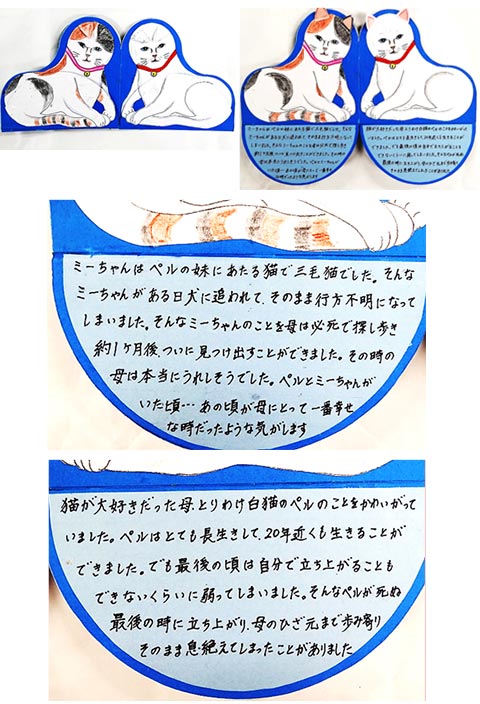 ミーちゃんはペルの妹にあたる猫で三毛猫でした。そんな
ミーちゃんがある日犬に追われて、そのまま行方不明になって
しまいました。そんなミーちゃんのことを母は必死で探し歩き
約1ヶ月後、ついに見つけ出すことができました。その時の
母は本当にうれしそうでした。ペルとミーちゃんが
いた頃…あの頃が母にとって一番幸せ
な時だったような気がします
猫が大好きだった母、とりわけ白猫のペルのことをかわいがって
いました。ペルはとても長生きして、20年近くも生きることが
できました。でも最後の頃は自分で立ち上がることも
できないくらいに弱ってしまいました。そんなペルが死ぬ
最後の時に立ち上がり、母のひざ元まで歩み寄り
そのまま息絶えてしまったことがありました